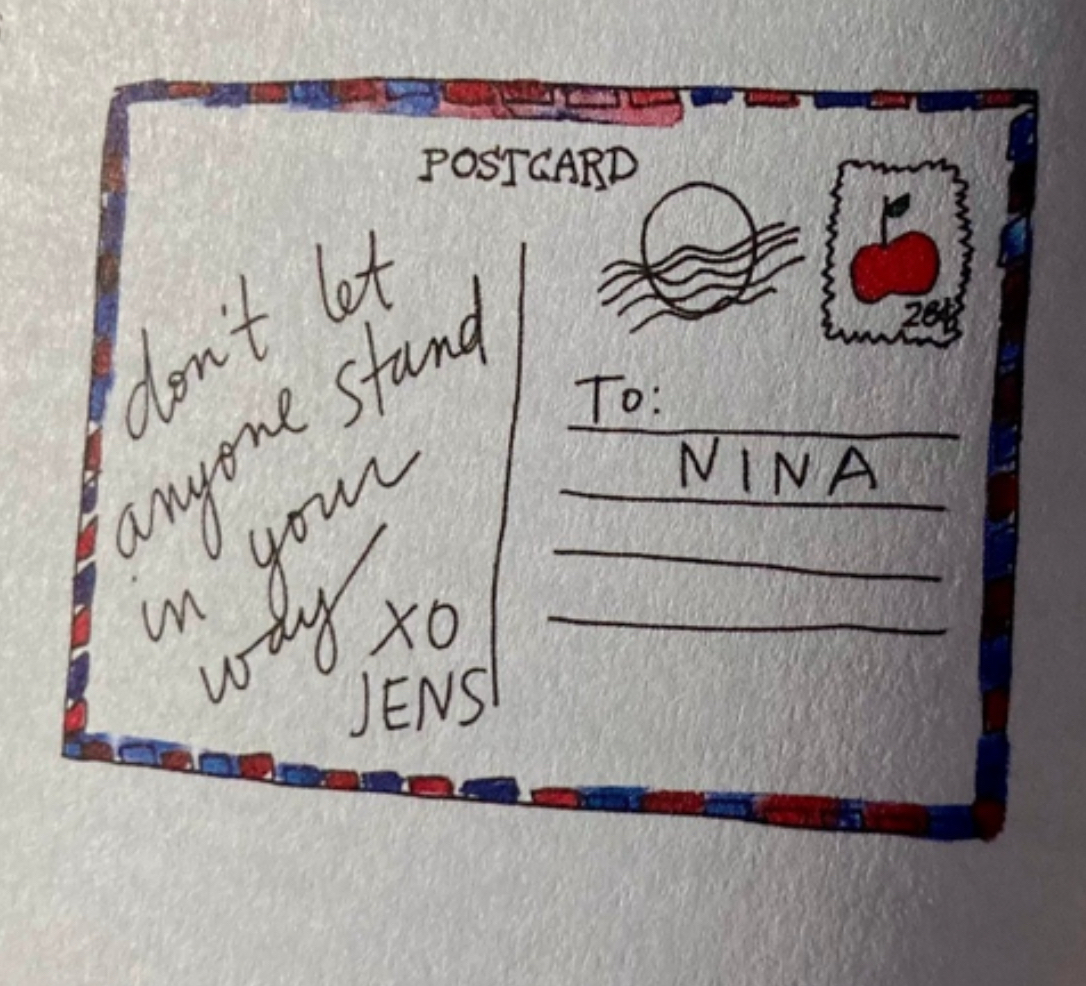 POSTCARD
don't let
anyone stand
in your
way
XO
JENS
To:
NINA